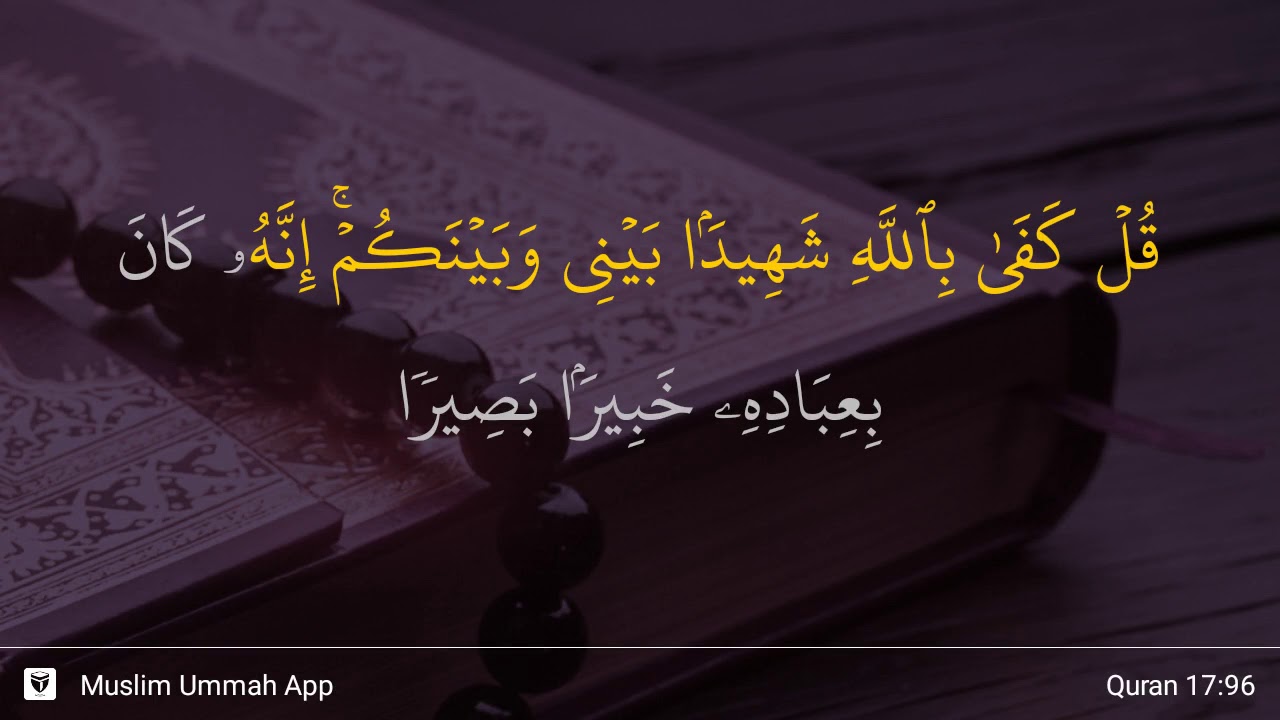 قُلۡ كَفَىٰ بِٱللَّهِ شَهِيدَۢا بَيۡنِي وَبَيۡنَكُمۡۚ إِنَّهُۥ كَانَ
بِعِبَادِهِۦ خَبِيرَۢا بَصِيرَا
Muslim Ummah App
Quran 17:96